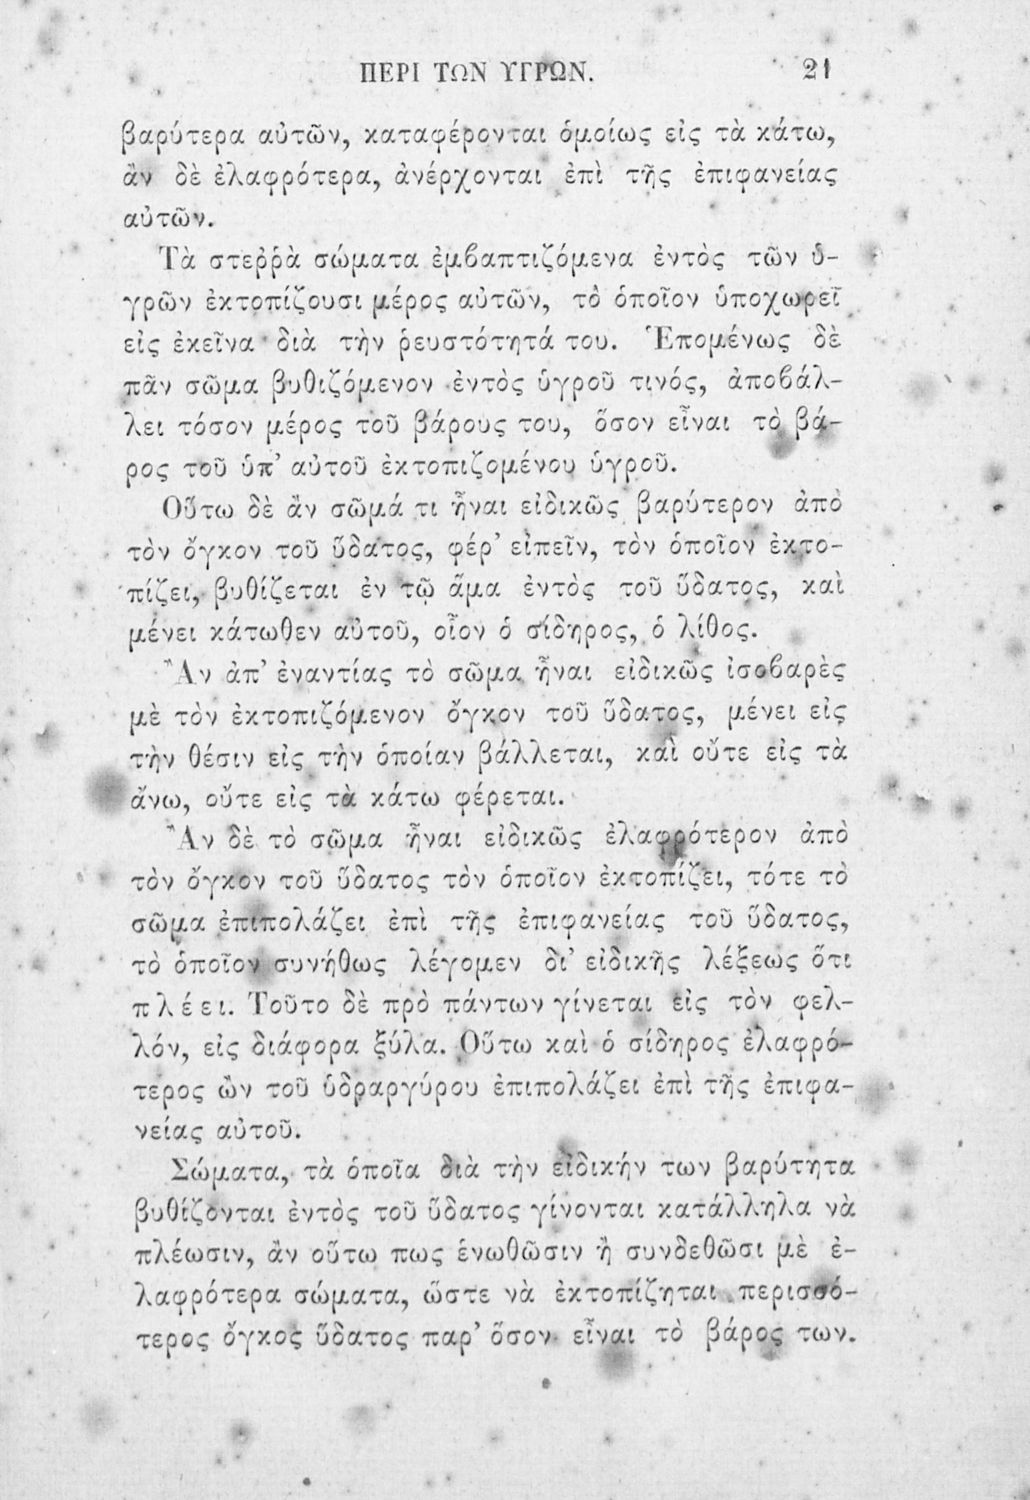 ΠΕΡΙ ΤΩΝ ΥΓΡΩΝ. 21
βαρύτερα αὐτῶν, καταφέρονται ὁμοίως εἰς τὰ κάτω,
ἂν δὲ ἐλαφρότερα, ἀνέρχονται ἐπὶ τῆς ἐπιφανείας
αὐτῶν.
Τὰ στεῤῥὰ σώματα ἐμβαπτιζόμενα ἐντὸς τῶν ὑ-
γρῶν ἐκτοπίζουσι μέρος αὐτῶν, τὸ ὁποῖον ὑποχωρεῖ
εἰς ἐκεῖνα διὰ τὴν ῥευστότητά του. Ἑπομένως δὲ
πᾶν σῶμα βυθιζόμενον ἐντὸς ὑγροῦ τινός, ἀποβάλ-
λει τόσον μέρος τοῦ βάρους του, ὅσον εἶναι τὸ βά-
ρος τοῦ ὑπ’ αὐτοῦ ἐκτοπιζομένου ὑγροῦ.
Οὕτω δὲ ἂν σῶμά τι ἦναι εἰδικῶς βαρύτερον ἀπὸ
τὸν ὄγκον τοῦ ὕδατος, φέρ’ εἰπεῖν, τὸν ὁποῖον ἐκτο-
πίζει, βυθίζεται ἐν τῷ ἅμα ἐντὸς τοῦ ὕδατος, καὶ
μένει κάτωθεν αὐτοῦ, οἷον ὁ σίδηρος, ὁ λίθος.
Ἂν ἀπ’ ἐναντίας τὸ σῶμα ἦναι εἰδικῶς ἰσοβαρὲς
μὲ τὸν ἐκτοπιζόμενον ὄγκον τοῦ ὕδατος, μένει εἰς
τὴν θέσιν εἰς τὴν ὁποίαν βάλλεται, καὶ οὔτε εἰς τὰ
ἄνω, οὔτε εἰς τὰ κάτω φέρεται.
Ἂν δὲ τὸ σῶμα ἦναι εἰδικῶς ἐλαφρότερον ἀπὸ
τὸν ὄγκον τοῦ ὕδατος τὸν ὁποῖον ἐκτοπίζει, τότε τὸ
σῶμα ἐπιπολάζει ἐπὶ τῆς ἐπιφανείας τοῦ ὕδατος,
τὸ ὁποῖον συνήθως λέγομεν δι’ εἰδικῆς λέξεως ὅτι
πλέει. Τοῦτο δὲ πρὸ πάντων γίνεται εἰς τὸν φελ-
λόν, εἰς διάφορα ξύλα. Οὕτω καὶ ὁ σίδηρος ἐλαφρό-
τερος ὢν τοῦ ὑδραργύρου ἐπιπολάζει ἐπὶ τῆς ἐπιφα-
νείας αὐτοῦ.
Σώματα, τὰ ὁποῖα διὰ τὴν εἰδικήν των βαρύτητα
βυθίζονται ἐντὸς τοῦ ὕδατος γίνονται κατάλληλα νὰ
πλέωσιν, ἂν οὕτω πως ἑνωθῶσιν ἢ συνδεθῶσι μὲ ἐ-
λαφρότερα σώματα, ὥστε νὰ ἐκτοπίζηται περισσό-
τερος ὄγκος ὕδατος παρ’ ὅσον εἶναι τὸ βάρος των.